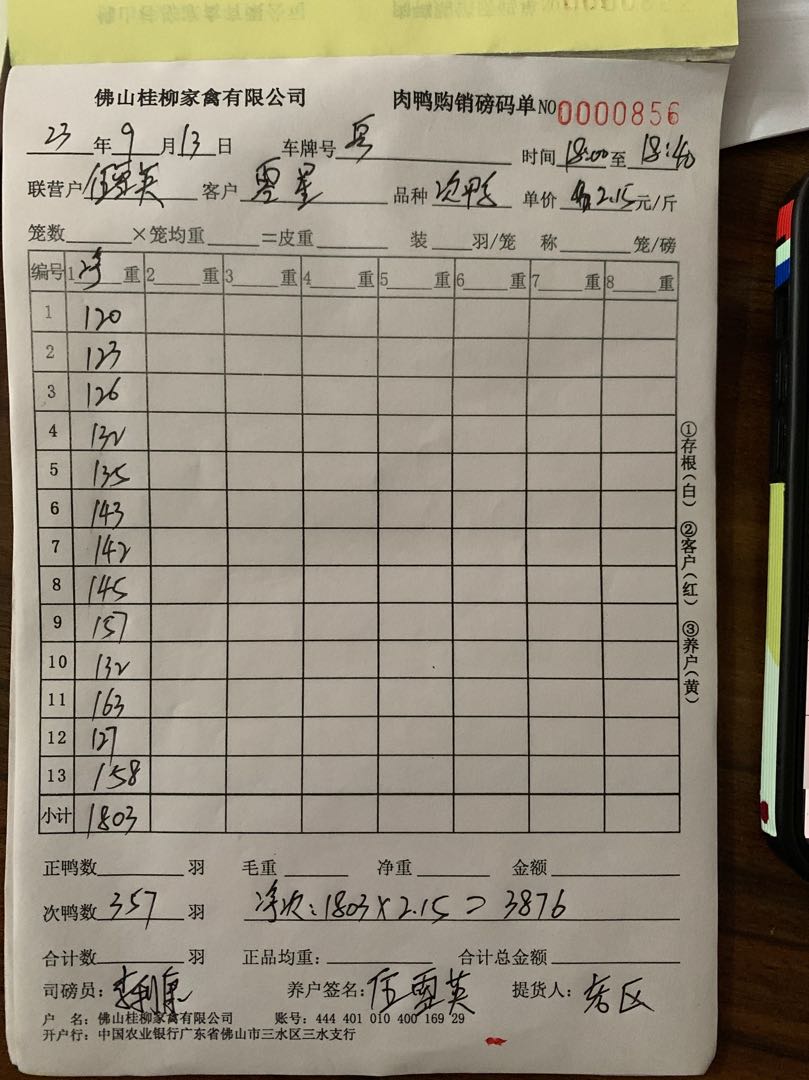 佛山桂柳家禽有限公司 肉鸭购销磅码单 NO 0000856
23 年 9 月 13 日 车牌号 时间 18:00 至 18:40
联营户 伍雪英 客户 品种 次鸭 单价 2.15 元/斤
笼数 ×笼均重 =皮重 装 羽/笼 称 笼/磅
编号 1 净 重 2 重 3 重 4 重 5 重 6 重 7 重 8 重
1 120
2 123
3 126
4 132
5 135
6 143
7 142
8 145
9 157
10 132
11 163
12 127
13 158
小计 1803
①存根(白) ②客户(红) ③养户(黄)
正鸭数 羽 毛重 净重 金额
次鸭数 357 羽 净次:1803×2.15=3876
合计数 羽 正品均重: 合计总金额
司磅员: 养户签名:伍雪英 提货人:
户 名:佛山桂柳家禽有限公司 账号:444 401 010 400 169 29
开户行:中国农业银行广东省佛山市三水区三水支行